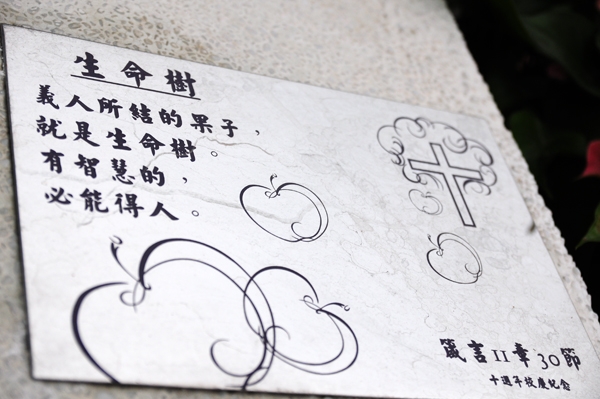 生命樹
義人所結的果子，
就是生命樹。
有智慧的，
必能得人。
箴言11章30節
十週年校慶紀念